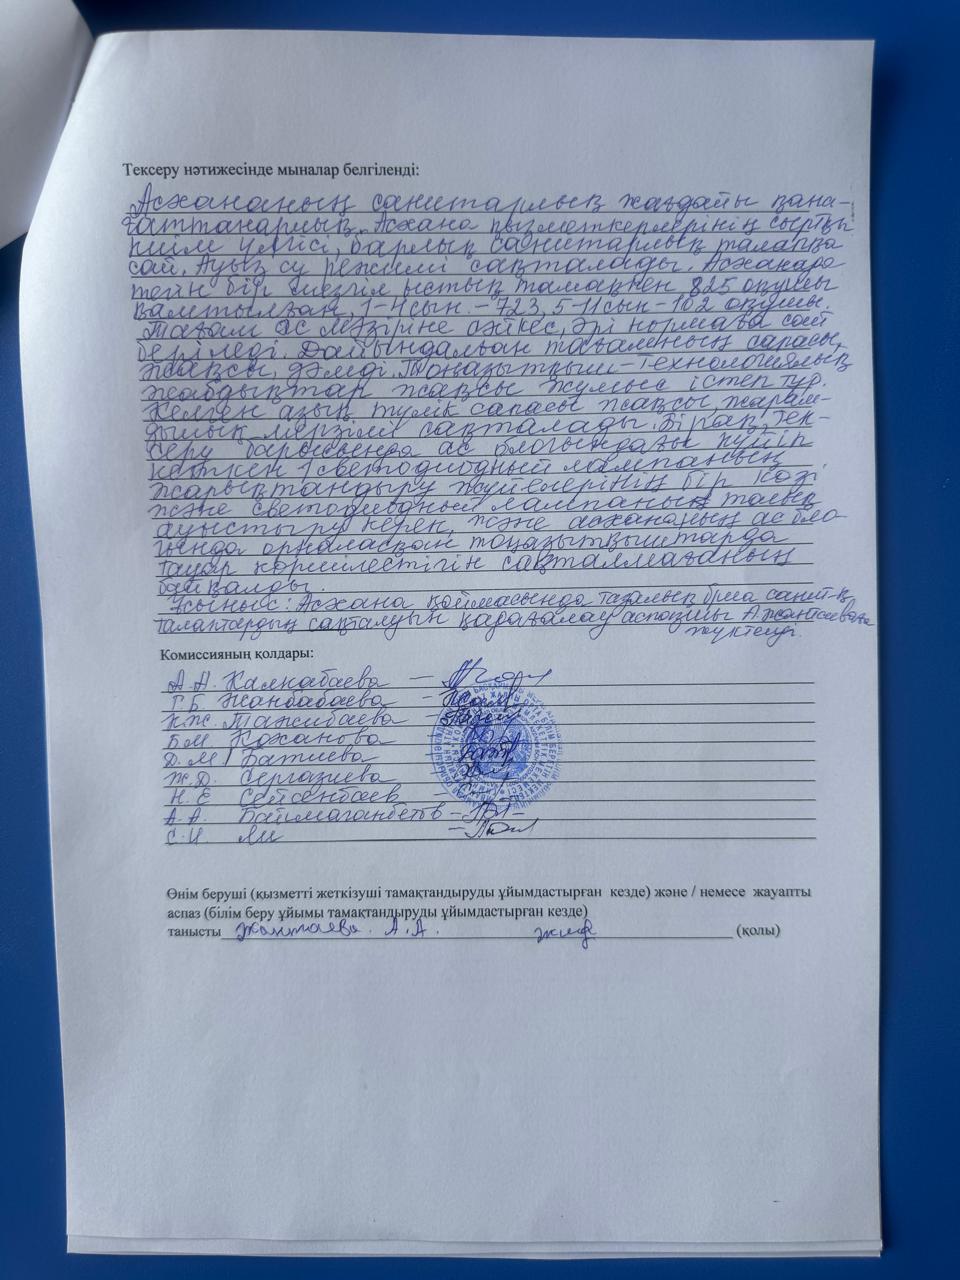 Тексеру нәтижесінде мыналар белгіленді:
Асхананың санитарлық жағдайы қана-
ғаттанарлық. Асхана қызметкерлерінің сыртқы
киім үлгісі, барлық санитарлық талапқа
сай. Ауыз су режимі сақталады. Асханада
тегін бір мезгіл ыстық тамақпен 825 оқушы
қамтылған, 1-4 сын. - 723, 5-11 сын - 102 оқушы.
Тағам ас мәзіріне сәйкес, әрі нормаға сай
беріледі. Дайындалған тағамның сапасы
жақсы, дәмді. Тоңазытқыш-технологиялық
жабдықтар жақсы жұмыс істеп тұр.
Келген азық түлік сапасы жақсы, жарам-
дылық мерзімі сақталады. Бірақ, тек-
серу барысында ас блогындағы күйіп
кеткен 1 светодиодный лампаның
жарықтандыру жүйелерінің бір көзі
және светодиодный лампаның
ауыстыру керек, және асхананың ас бло-
гында орналасқан тоңазытқыштарда
тауар көршілестігін сақталмағанын
байқалды.
Ұсыныс: Асхана қоймасында тазалық санит-қ
талаптардың сақталуын қадағалау аспазшы А. Жантаеваға
жүктелді.
Комиссияның қолдары:
А.А. Калкабаева -
Г.Б. Жанбабаева -
К.Ж. Тажибаева -
Б.М. Кожанова
Д.М. Батиева
Ж.Д. Сергазиева
Н.Е Сейсенбаев -
А.А. Баймаганбетов -
С.И. Ли -
Өнім беруші (қызметті жеткізуші тамақтандыруды ұйымдастырған кезде) және / немесе жауапты
аспаз (білім беру ұйымы тамақтандыруды ұйымдастырған кезде)
танысты Жантаева. А.А. (қолы)